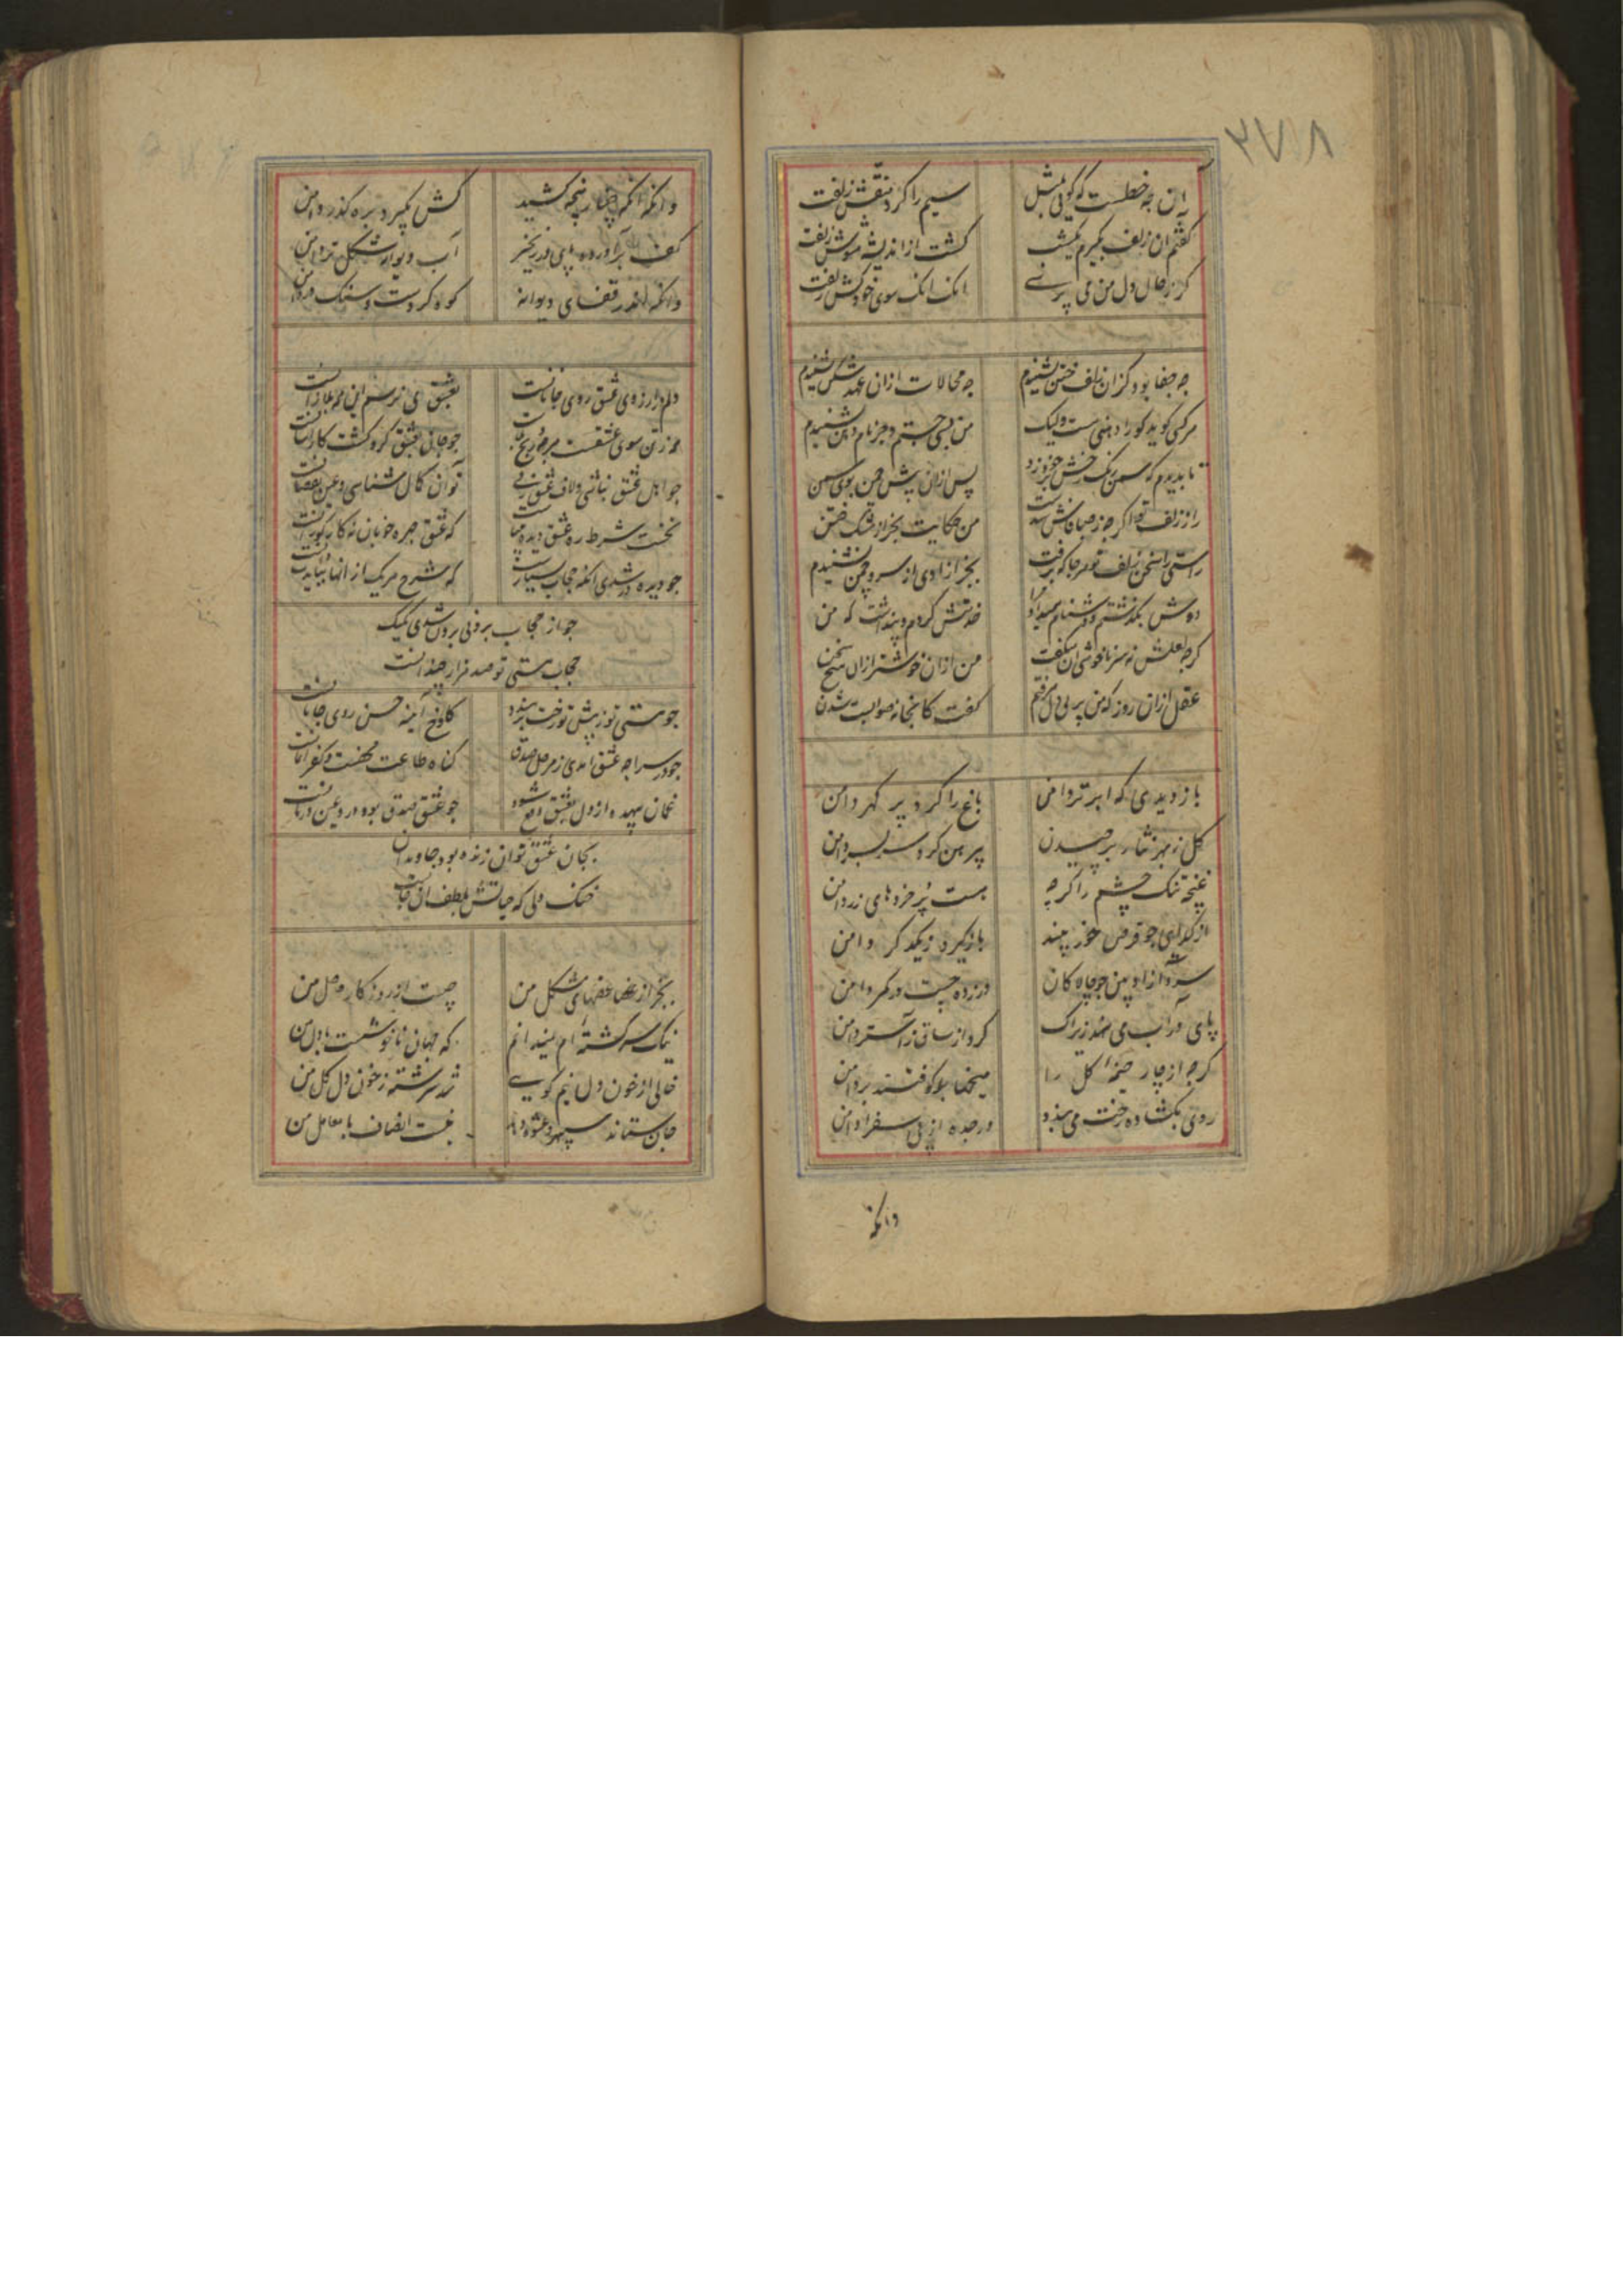 ۳۷۸
آن چه خطست که گویی بمثل
سیم را کرد منقش زلفت
گفتم ان زلف بگیرم یکشب
گشت از اندیشه مشوش زلفت
گر ز حال دل من می پرسی
انک انک سوی خود کش زلفت
چه جفا بود کزان زلف ختن نشنیدم
چه محالات ازان عهد شکن نشنیدم
هر کسی گوید کو را دهنی هست ولیک
من بسی جستم و جز نام دهن نشنیدم
تا بدیدم که سمن رنگ رخش
پس ازان پیش چمن بوی سمن
راز زلف تو اگر چه ز صبا فاش شدست
من حکایت بجز از مشک ختن
راستی را سخن زلف تو هر جا که برفت
بجز ازادی از سرو چمن نشنیدم
دوش بگذشتم و دشنام همی داد مرا
خدمتش کردم و پنداشت که من
گرچه لعلش نه سزا ناخوشی ان گفت
من ازان خوشتر ازان هیچ سخن
عقل ازان روز که من پی دل رفتم
گفت کانجا نه صوابست شدن
باز دیدی که ابر تر دامن
باغ را کرد پر گهر دامن
گل ز بهر نثار بر چیدن
پیرهن کرد سر بسر دامن
غنچه تنگ چشم را گر چه
هست پر خرده های زر دامن
از گدایی چو قرص خور بیند
باز گیرد ز یکدگر دامن
سرو آزاد بین چو چالاکان
در زده چست در کمر دامن
پای در آب می نهد زیراک
کرد از ساق زاستر دامن
گرچه از چار خیمه گل را
میخها بوکوفتند بر دامن
روی بگشاده رخت می بندد
در چده از پی سفر دامن
وانکه
وانکه انکه چنار پنجه کشید
کش بگیرد بره گذر دامن
کف بر آورده پای در زنجیر
آب دیوانه شکل تر دامن
وانکه اندر قفای دیوانه
کوه کردست و سنگ در دامن
دلم در ارزوی عشق روی جانانست
بعشق می نرسم این همه بلا زانست
همه ز تن سوی عشقست هر چه رنج
چو جان بعشق گرو گشت کار اسانست
چو اهل عشق نباشی و لاف عشق زنی
تو آن کمال شناسی و عین نقصانست
نخست شرط ره عشق دیده میباید
که عشق چهره خوبان نه کار کورانست
چو دیده ور شدی انگه حجاب بسیارست
که شرح هر یک از انها نیاید
چو از حجاب برونی برون شدی لیک
حجاب هستی تو صد هزار چندانست
چو هستی تو ز پیش تو رخت بر بندد
کلوخ آینه حسن روی جانانست
چو در سراچه عشق امدی ز مرحل صدق
گناه طاعت محضست و کفر ایمانست
غمان بیهده از دل بعشق دفع شود
چو عشق صدق بود درد عین درمانست
بجان عشق توان زنده بود جاویدان
خنک دلی که حیاتش بلطف ان جانست
بجز از غصهای مشکل من
چیست از روزگار حاصل من
نیک سرگشته ام نمیدانم
که جهان ناخوشست یا دل من
خالی از خون دل نیم گویی
شد سرشته ز خون دل گل من
جان ستاند سپهر و عشوه دهد
نیست انصاف با معامل من